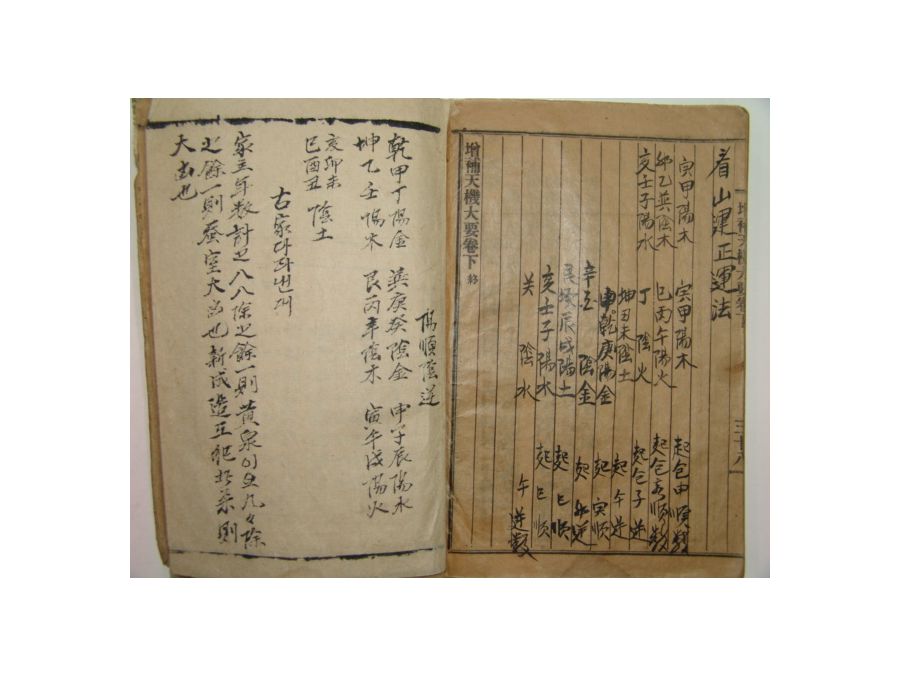 看山運正運法
寅甲陽木 寅甲陽木 起包申順數
卯乙巽陰木 巳丙午陽火 起包亥順數
亥壬子陽水 丁陰火 起包子逆
坤丑未陰土 起午逆
申乾庚陽金 起寅順
辛酉陰金
艮戌辰戌陽土 起巳順
亥壬子陽水 起巳順
癸陰水 午逆數
增補天機大要卷下 終
陽順陰逆
乾甲丁陽金 巽庚癸陰金 申子辰陽水
坤乙壬陽木 艮丙辛陰木 寅午戌陽火
亥卯未 陰土
巳酉丑
古家
家主年數計之八八除之餘一則黃泉이요九々除
之餘一則蚕室大凶也新成造五犯北 則
大凶也